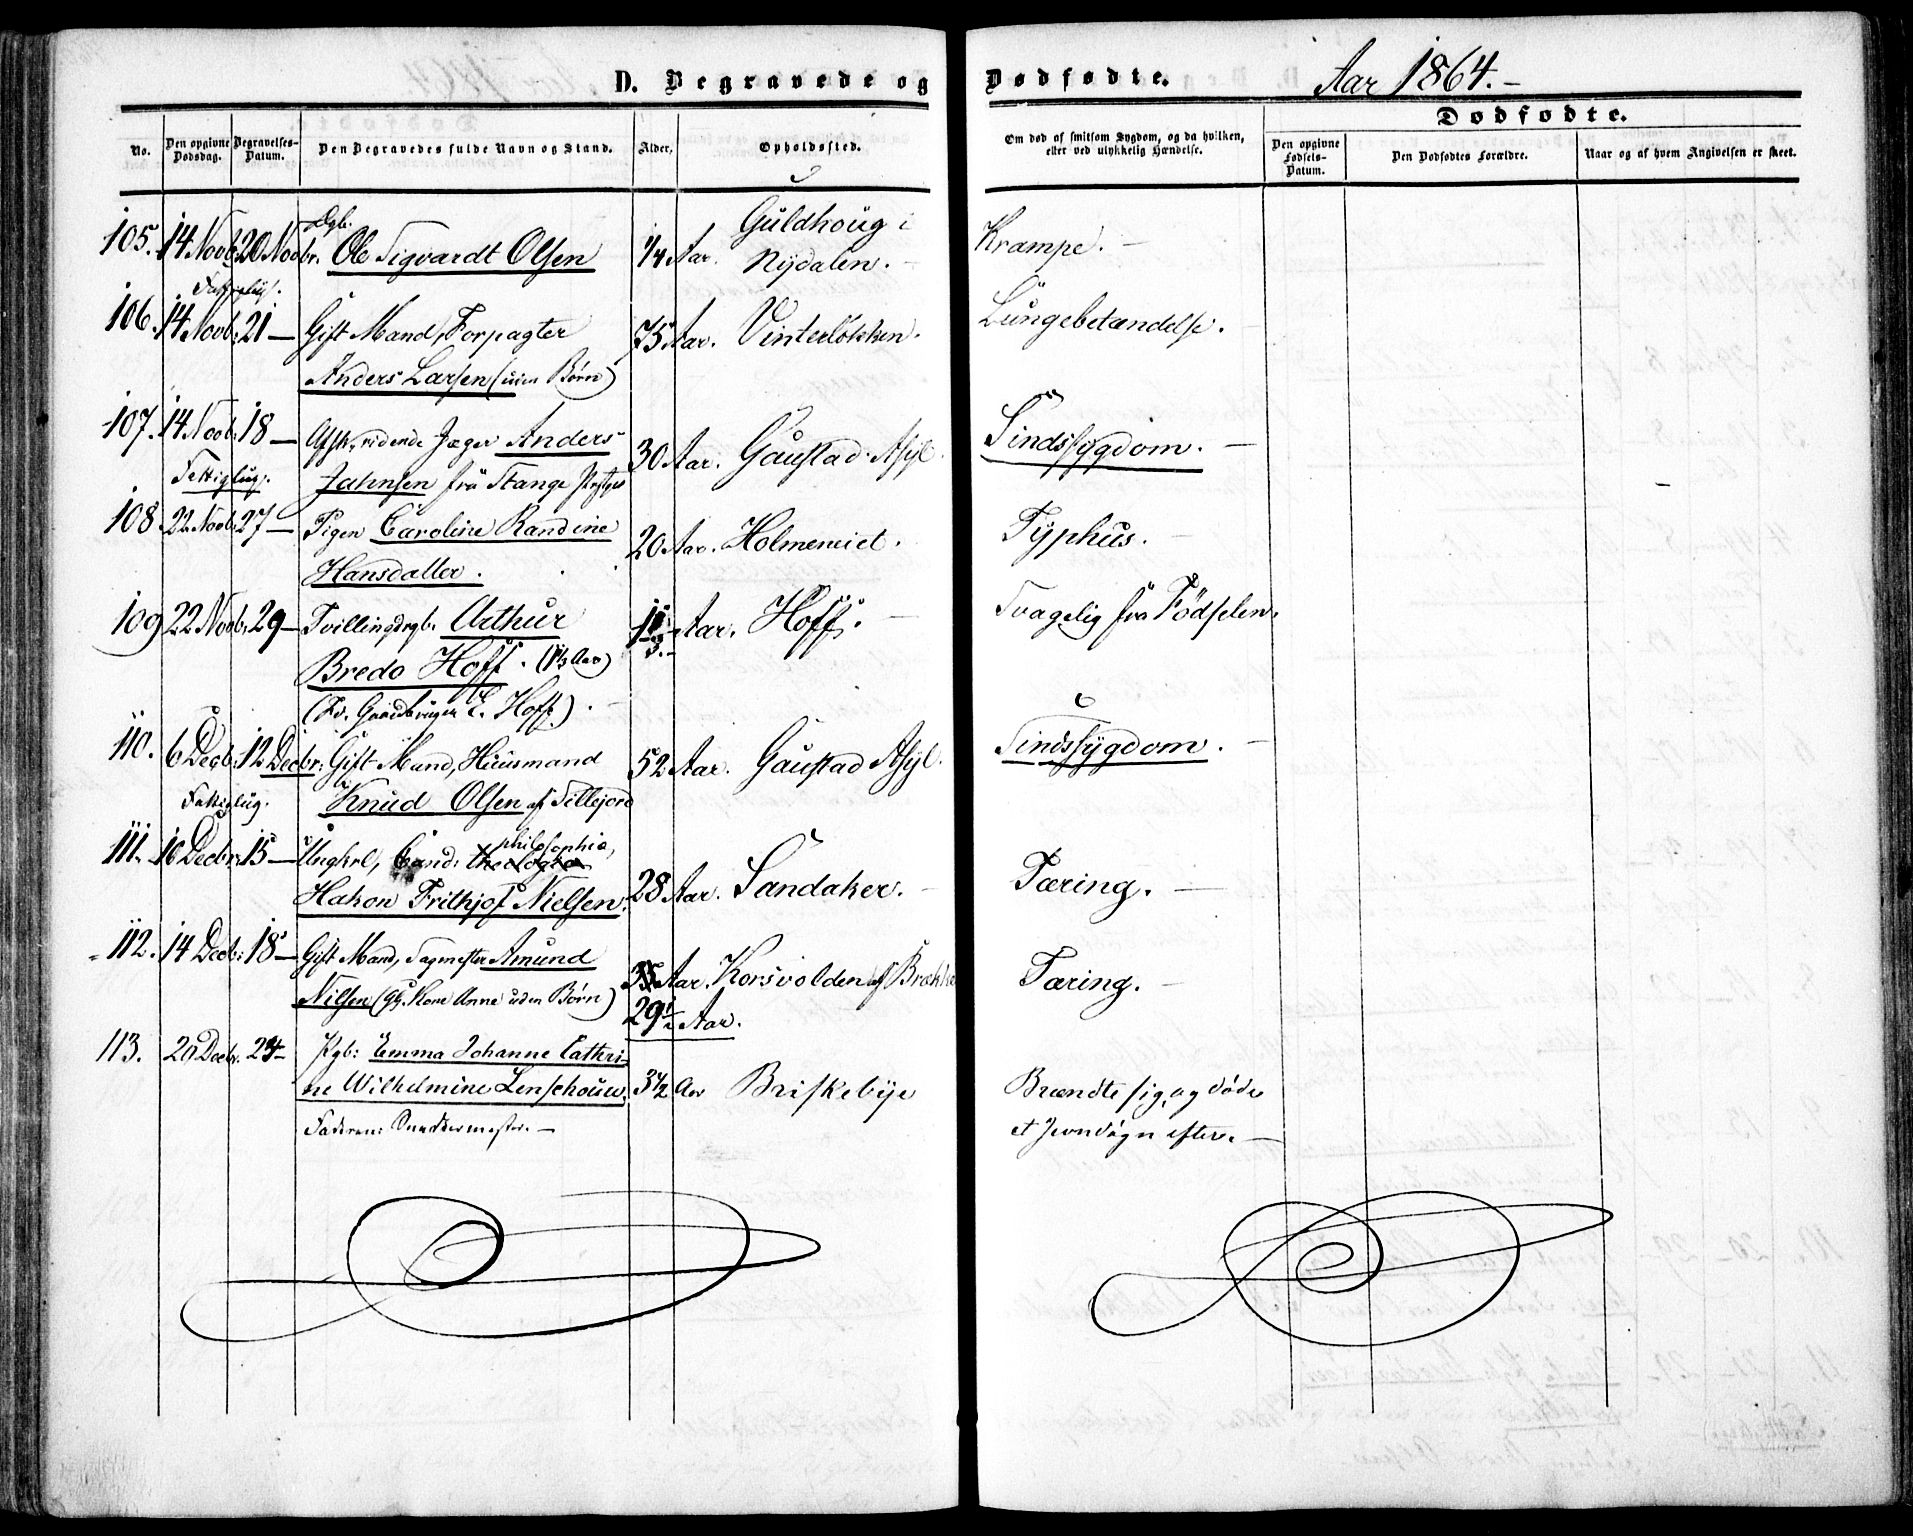 D. Begravede og Dødfødte. Aar 1864.-
No.
Den opgivne Dødsdag.
Begravelses-Datum.
Den Begravedes fulde Navn og Stand.
Alder.
Opholdssted.
Om død af smitsom Sygdom, og da hvilken, eller ved ulykkelig Hændelse.
Dødfødte.
Den opgivne Fødsels-Datum.
Den Dødfødtes Forældre.
Naar og af hvem Angivelsen er skeet.
Dgb.
105. 14 Novb: 20 Novbr. Ole Sigvardt Olsen 1/4 Aar. Guldhoug i Krampe. -
Nydalen. -
106. 14 Novb: 21 - Gift Mand, Forpagter 75 Aar. Vinterløkken. Lungebetændelse. -
Anders Larsen (uden Børn)
107. 14 Novb: 18 - Afsk. ridende Jæger Anders 30 Aar. Gaustad Asyl. Sindssygdom. -
Fattiglig. Jahnsen fra Stange
108 22 Novb: 27 - Pigen Caroline Randine 20 Aar. Typhus. -
Hansdatter.
109 22 Novb: 29 - Tvillingdrgb: Arthur Aar. Hoff. - Svagelig fra Fødselen.
Bredo Hoff. (1 1/3 Aar)
(Fv. Gaardbruger E. Hoff). -
110. 6 Decb: 12 Decbr: Gift Mand, Huusmand 52 Aar. Gaustad Asyl. Sindssygdom. -
Fattiglig. Knud Olsen af Sillejord
philosophia,
111. 10 Decbr: 15 - Ungkrl, Cand: theologia
Hakon Frithjof Nielsen. 28 Aar. Sandaker. - Tæring. -
112. 14 Decb: 18 - Gift Mand, Sagmester Amund 35 Aar. Korsvolden af Brække Tæring. -
Nilsen (gg. Kone Anne uden Børn)
29 1/2 Aar.
113. 20 Decbr. 24 - Pgb: Emma Johanne Cathri-
ne Wilhelmine Lenschouw. 3 1/2 Aar Briskebye Brændte sig, og døde
Faderen: Snedkermester. - et Jevndøgn efter. -